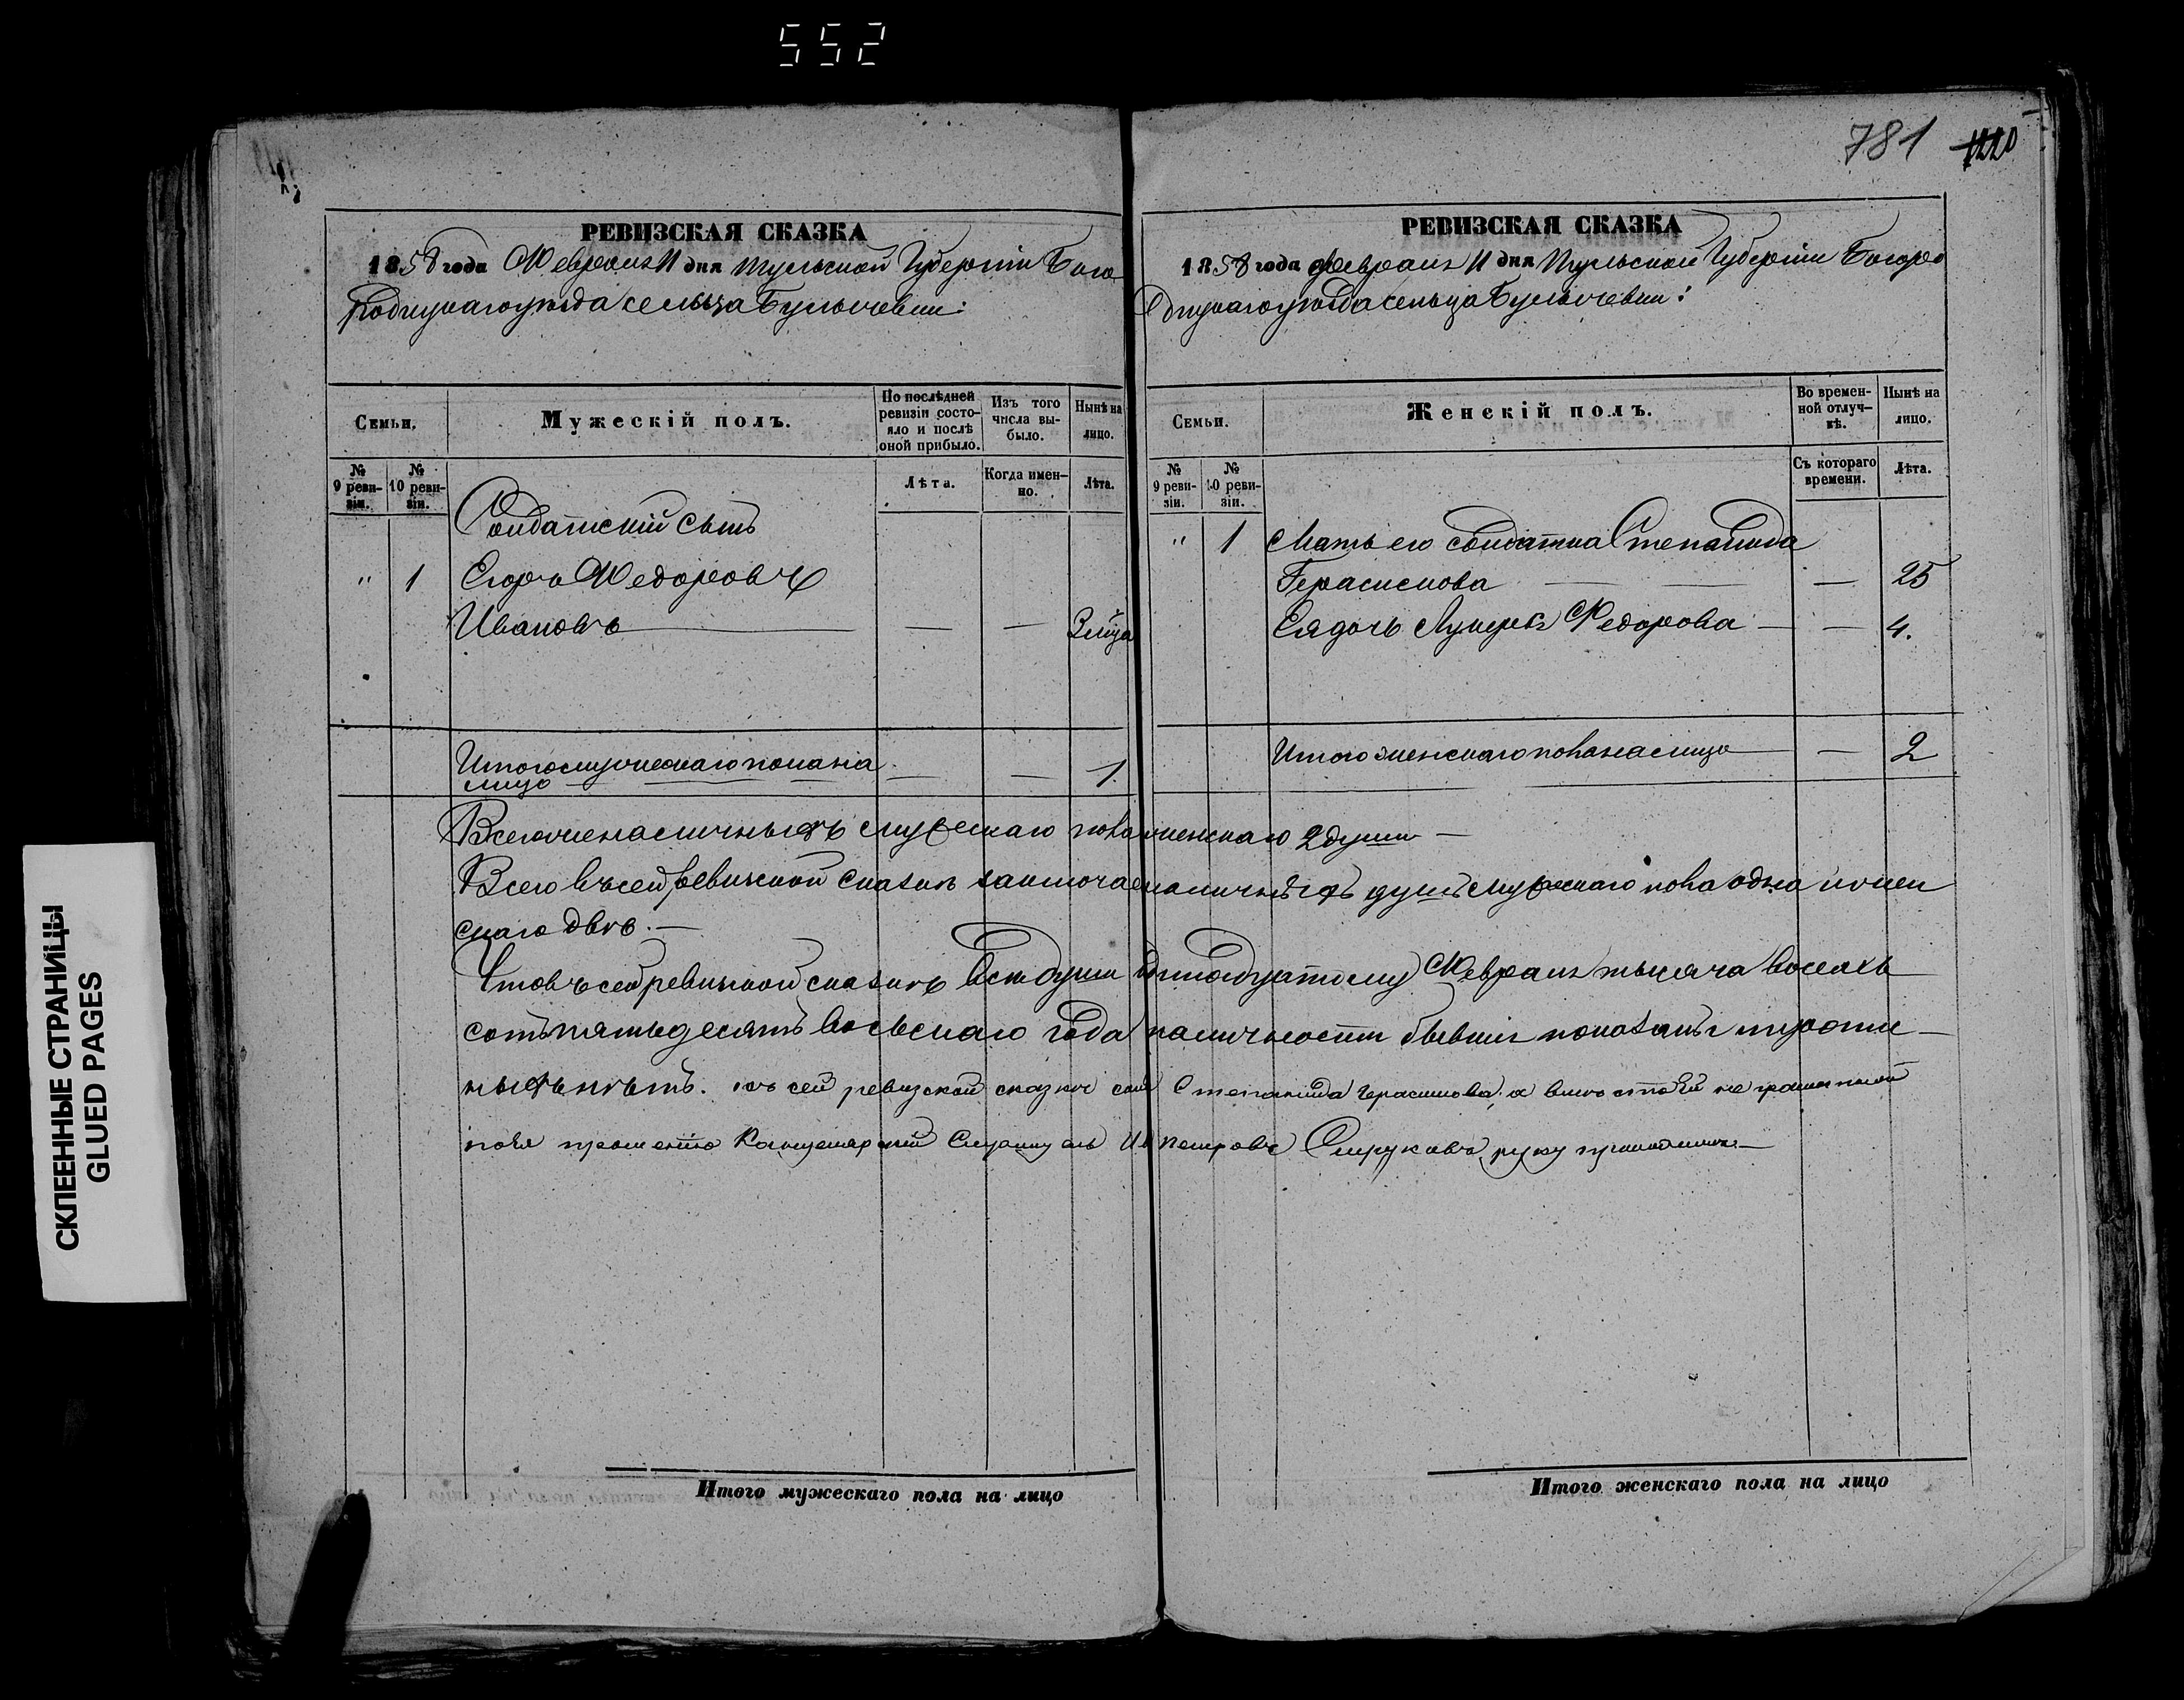 552
781 1220
РЕВИЗСКАЯ СКАЗКА
1858 года Февраля 11 дня Тульской Губерніи Бого
родицкаго уѣзда сельца Булычевки:
Семьи.
Мужескій полъ.
По послѣдней ревизіи состояло и послѣ оной прибыло.
Изъ того числа выбыло.
Нынѣ на лицо.
№ 9 ревизіи.
№ 10 ревизіи.
Лѣта.
Когда именно.
Лѣта.
Солдатскій сынъ
" 1 Егоръ Федоровъ
Ивановъ — — —
Итого мужескаго пола на — — 1.
лицо
РЕВИЗСКАЯ СКАЗКА
1858 года Февраля 11 дня Тульской Губерніи Богоро
дицкаго уѣзда сельца Булычевки:
Семьи.
Женскій полъ.
Во временной отлучкѣ.
Нынѣ на лицо.
№ 9 ревизіи.
№ 10 ревизіи.
Съ котораго времени.
Лѣта.
" 1 Мать его солдатка Степанида
Герасимова — — — 25
Ея дочь Федорова — — 4.
Итого женскаго пола на лицо — — 2
Всего наличныхъ мужескаго пола женскаго 2 души —
Всего въ сей ревизской сказкѣ наличныхъ душъ мужескаго пола одна и жен
скаго двѣ. —
Что въ сей ревизской сказкѣ всѣ души Февраля тысяча восемь
сотъ пятьдесятъ восьмаго года наличности бывшія показаны и
ныхъ нѣтъ. къ сей ревизской сказкѣ Степанида Герасимова, а вмѣсто ей не грамотной
по ея прошенію Канцелярскій Служитель Петровъ руку приложилъ —
Итого мужескаго пола на лицо
Итого женскаго пола на лицо
СКЛЕЕННЫЕ СТРАНИЦЫ
GLUED PAGES